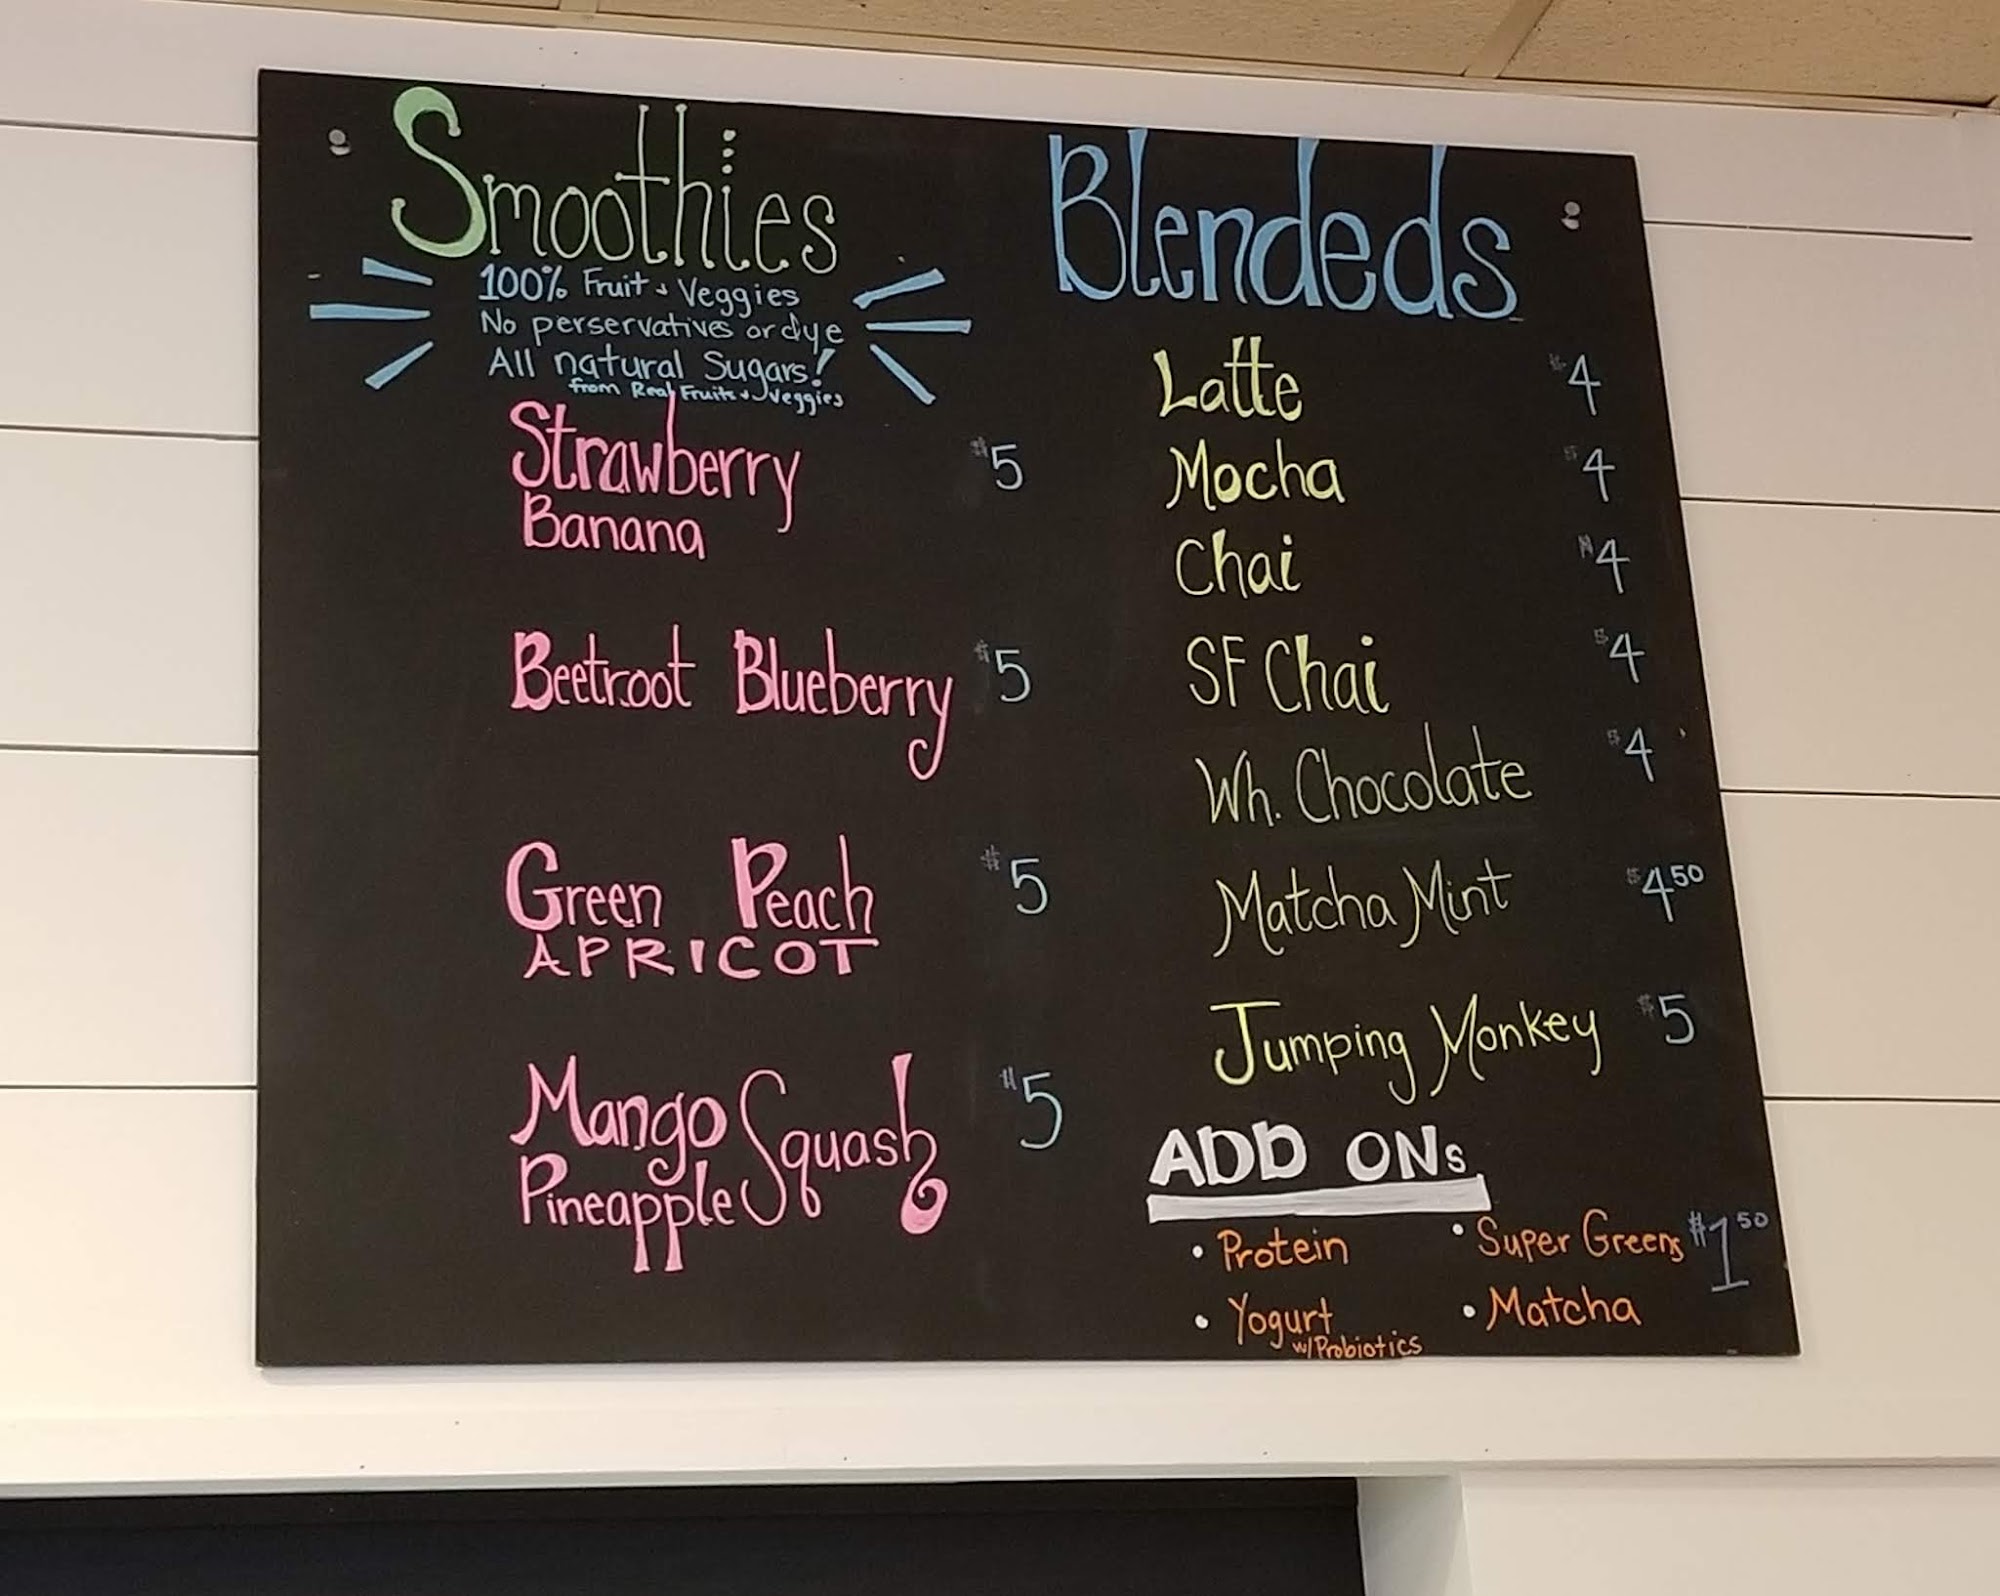 Smoothies
100% Fruit & Veggies
No perservatives or dye
All natural Sugars!
from Real Fruits & Veggies
Strawberry $5
Banana
Beetroot Blueberry $5
Green Peach $5
APRICOT
Mango Squash $5
Pineapple
Blendeds
Latte $4
Mocha $4
Chai $4
SF Chai $4
Wh. Chocolate $4
Matcha Mint $4.50
Jumping Monkey $5
ADD ONs
• Protein • Super Greens $1.50
• Yogurt • Matcha
w/Probiotics